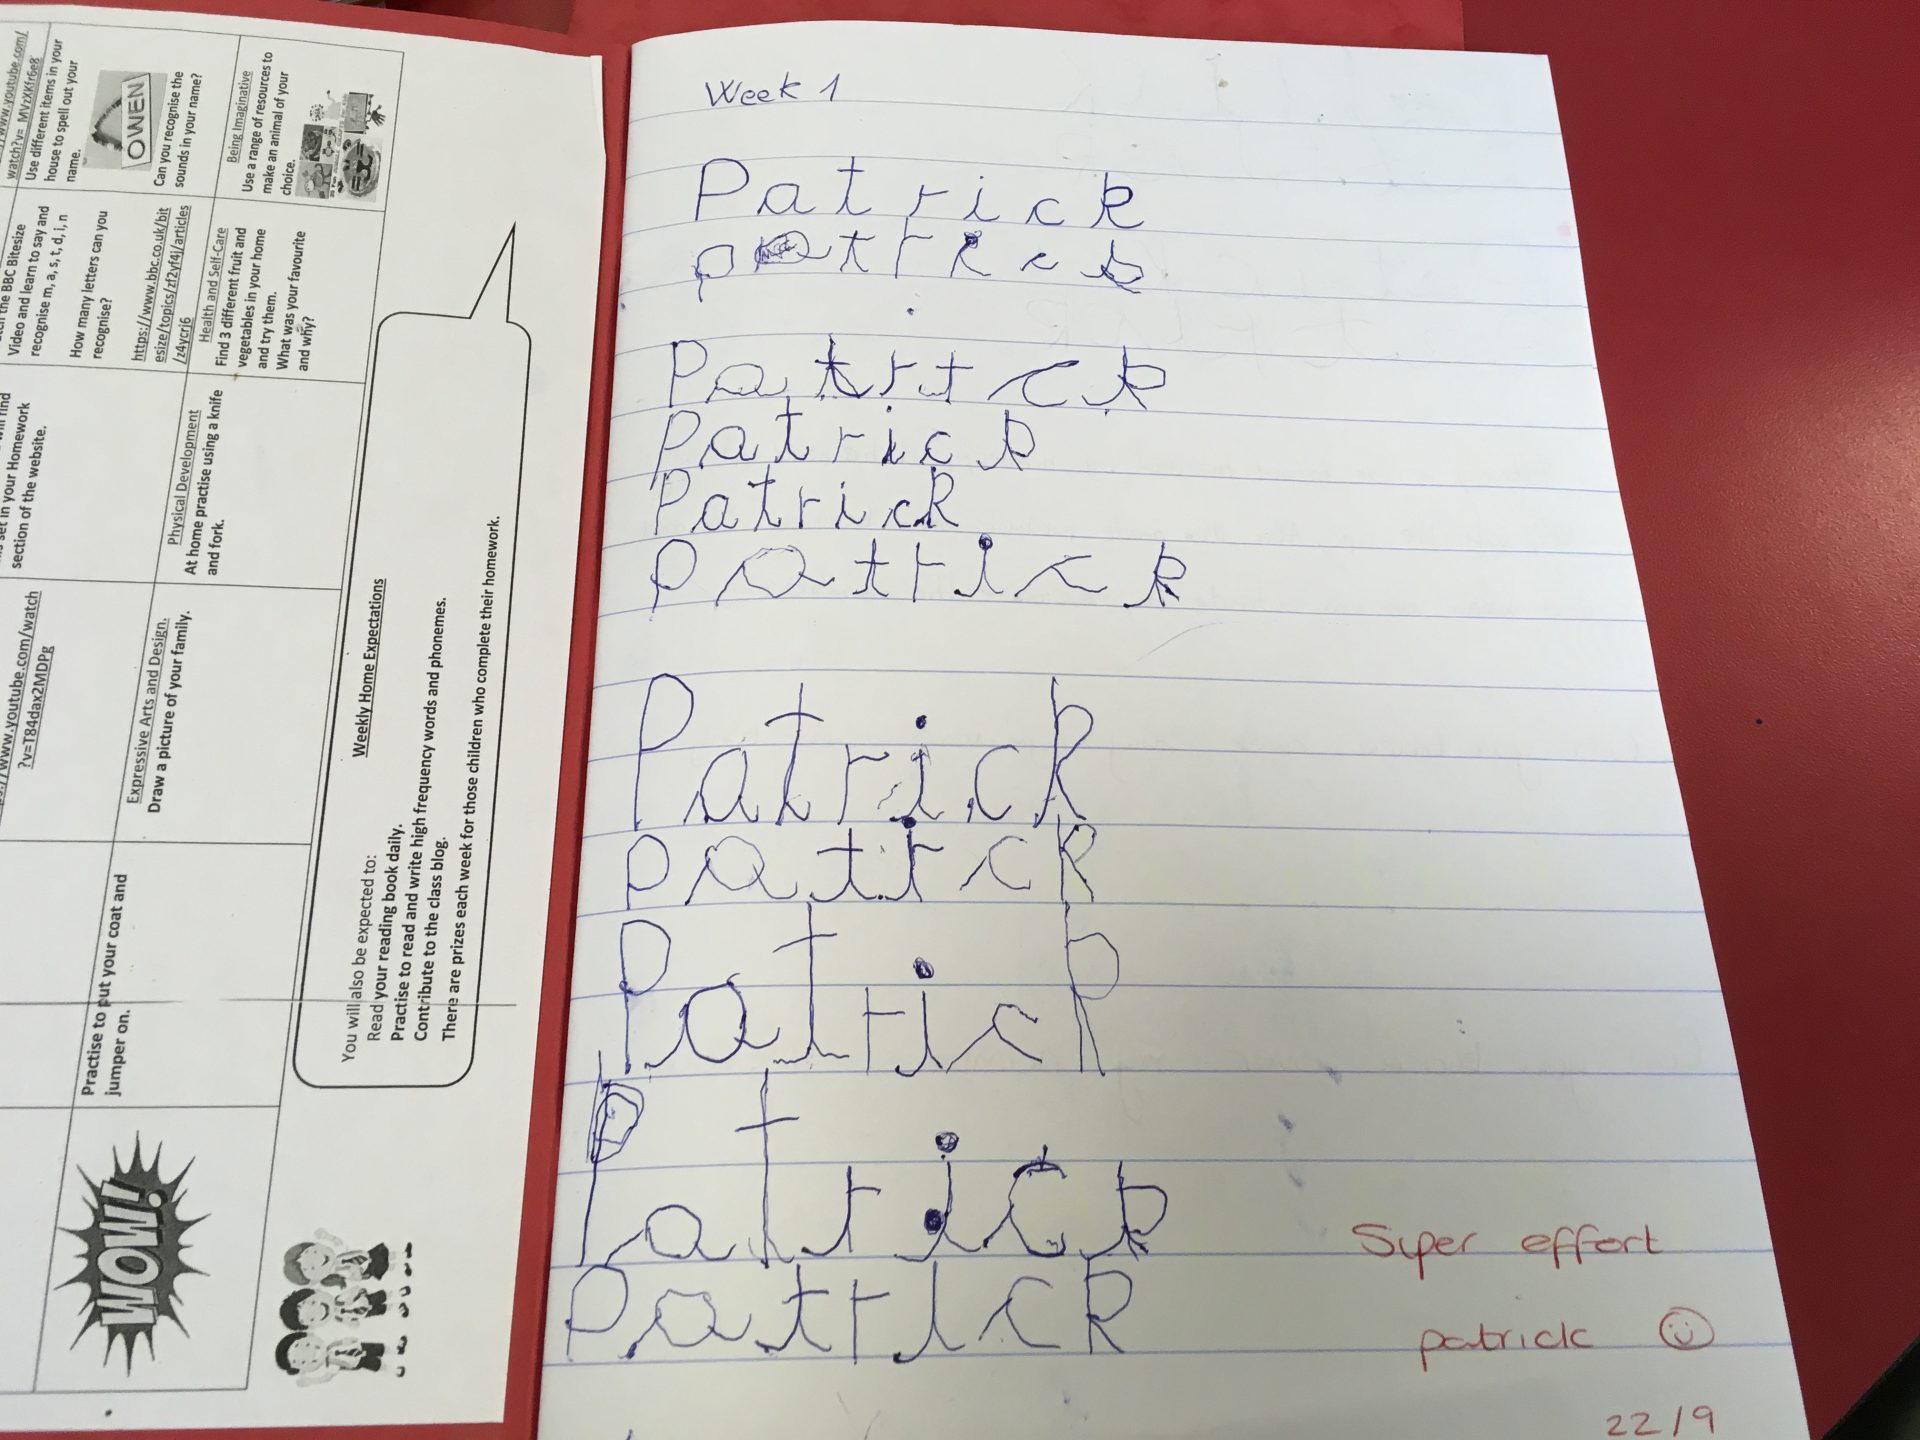 www.youtube.com/
watch?v=_MVzXKfr6e8
Use different items in your
house to spell out your
name.
OWEN
Can you recognise the
sounds in your name?
Being Imaginative
Use a range of resources to
make an animal of your
choice.
the BBC Bitesize
Video and learn to say and
recognise m, a, s, t, d, i, n
How many letters can you
recognise?
https://www.bbc.co.uk/bit
esize/topics/zf2yf4j/articles
/z4ycrj6
Health and Self-Care
Find 3 different fruit and
vegetables in your home
and try them.
What was your favourite
and why?
set in your Homework
section of the website.
Physical Development
At home practise using a knife
and fork.
www.youtube.com/watch
?v=T84dax2MDPg
Expressive Arts and Design.
Draw a picture of your family.
Practise to put your coat and
jumper on.
WOW!
Weekly Home Expectations
You will also be expected to:
Read your reading book daily.
Practise to read and write high frequency words and phonemes.
Contribute to the class blog.
There are prizes each week for those children who complete their homework.
Week 1
Patrick
patrick
Patrick
Patrick
Patrick
patrick
Patrick
patrick
Patrick
Patrick
Patrick
Super effort
patrick
22/9